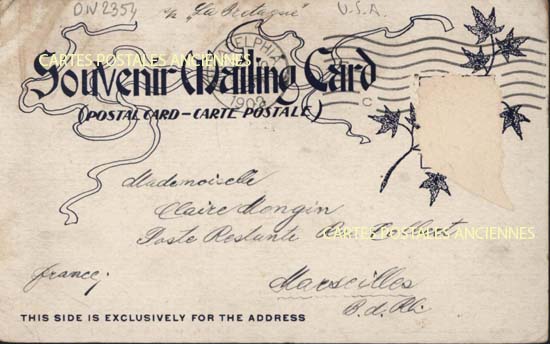 ON2354 "La Bretagne" U.S.A.
CARTES POSTALES ANCIENNES
PHILADELPHIA
1909
Souvenir Mailing Card
(POSTAL CARD – CARTE POSTALE)
Mademoiselle
Claire Mongin
Poste Restante Rue Colbert
CARTES POSTALES ANCIENNES
Marseilles
France
B. d. Rh.
THIS SIDE IS EXCLUSIVELY FOR THE ADDRESS